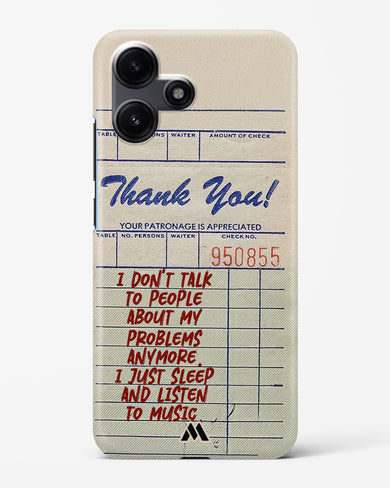 TABLE SONS WAITER AMOUNT OF CHECK
Thank You!
YOUR PATRONAGE IS APPRECIATED
TABLE NO. PERSONS WAITER CHECK NO.
950855
I DON'T TALK
TO PEOPLE
ABOUT MY
PROBLEMS
ANYMORE.
I JUST SLEEP
AND LISTEN
TO MUSIC